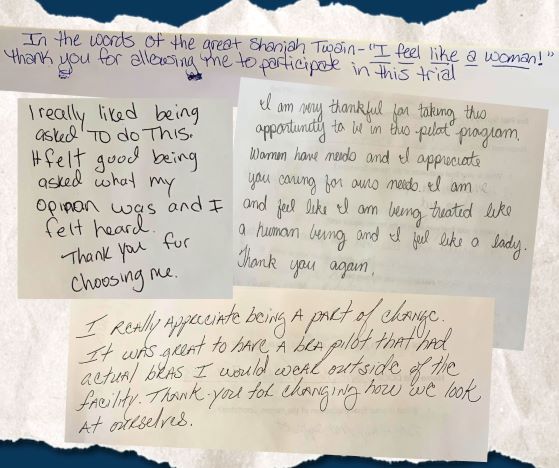 In the words of the great Shaniah Twain - "I feel like a woman!"
Thank you for allowing me to participate in this trial
I really liked being
asked TO do This.
It felt good being
asked what my
opinion was and I
felt heard.
Thank you for
choosing me.
I am very thankful for taking this
opportunity to be in this pelot program.
Women have needs and I appreciate
you caring for ours needs. I am
and feel like I am being treated like
a human being and I feel like a lady.
Thank you again.
I REALLY APPRECIATE being A pART of change.
It was great to have A bRA pilot thAT had
actual bRAS I would weAR outside of the
fAcility. Thank you foR changing how we look
AT ourselves.